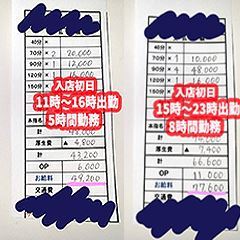 40分 ×
70分 × 2 20,000
90分 × 1 12,000
120分 × 16,000
150分 ×
入店初日
11時～16時出勤
5時間勤務
計 48,000
厚生費 ▲ 4,800
計 43,200
OP 6,000
お給料 49,200
交通費
40分 ×
70分 × 1 10,000
90分 × 4 48,000
120分 × 1 16,000
150分
入店初日
15時～23時出勤
8時間勤務
本指名
計
厚生費 ▲ 7,400
計 66,600
OP 11,000
お給料 77,600
交通費